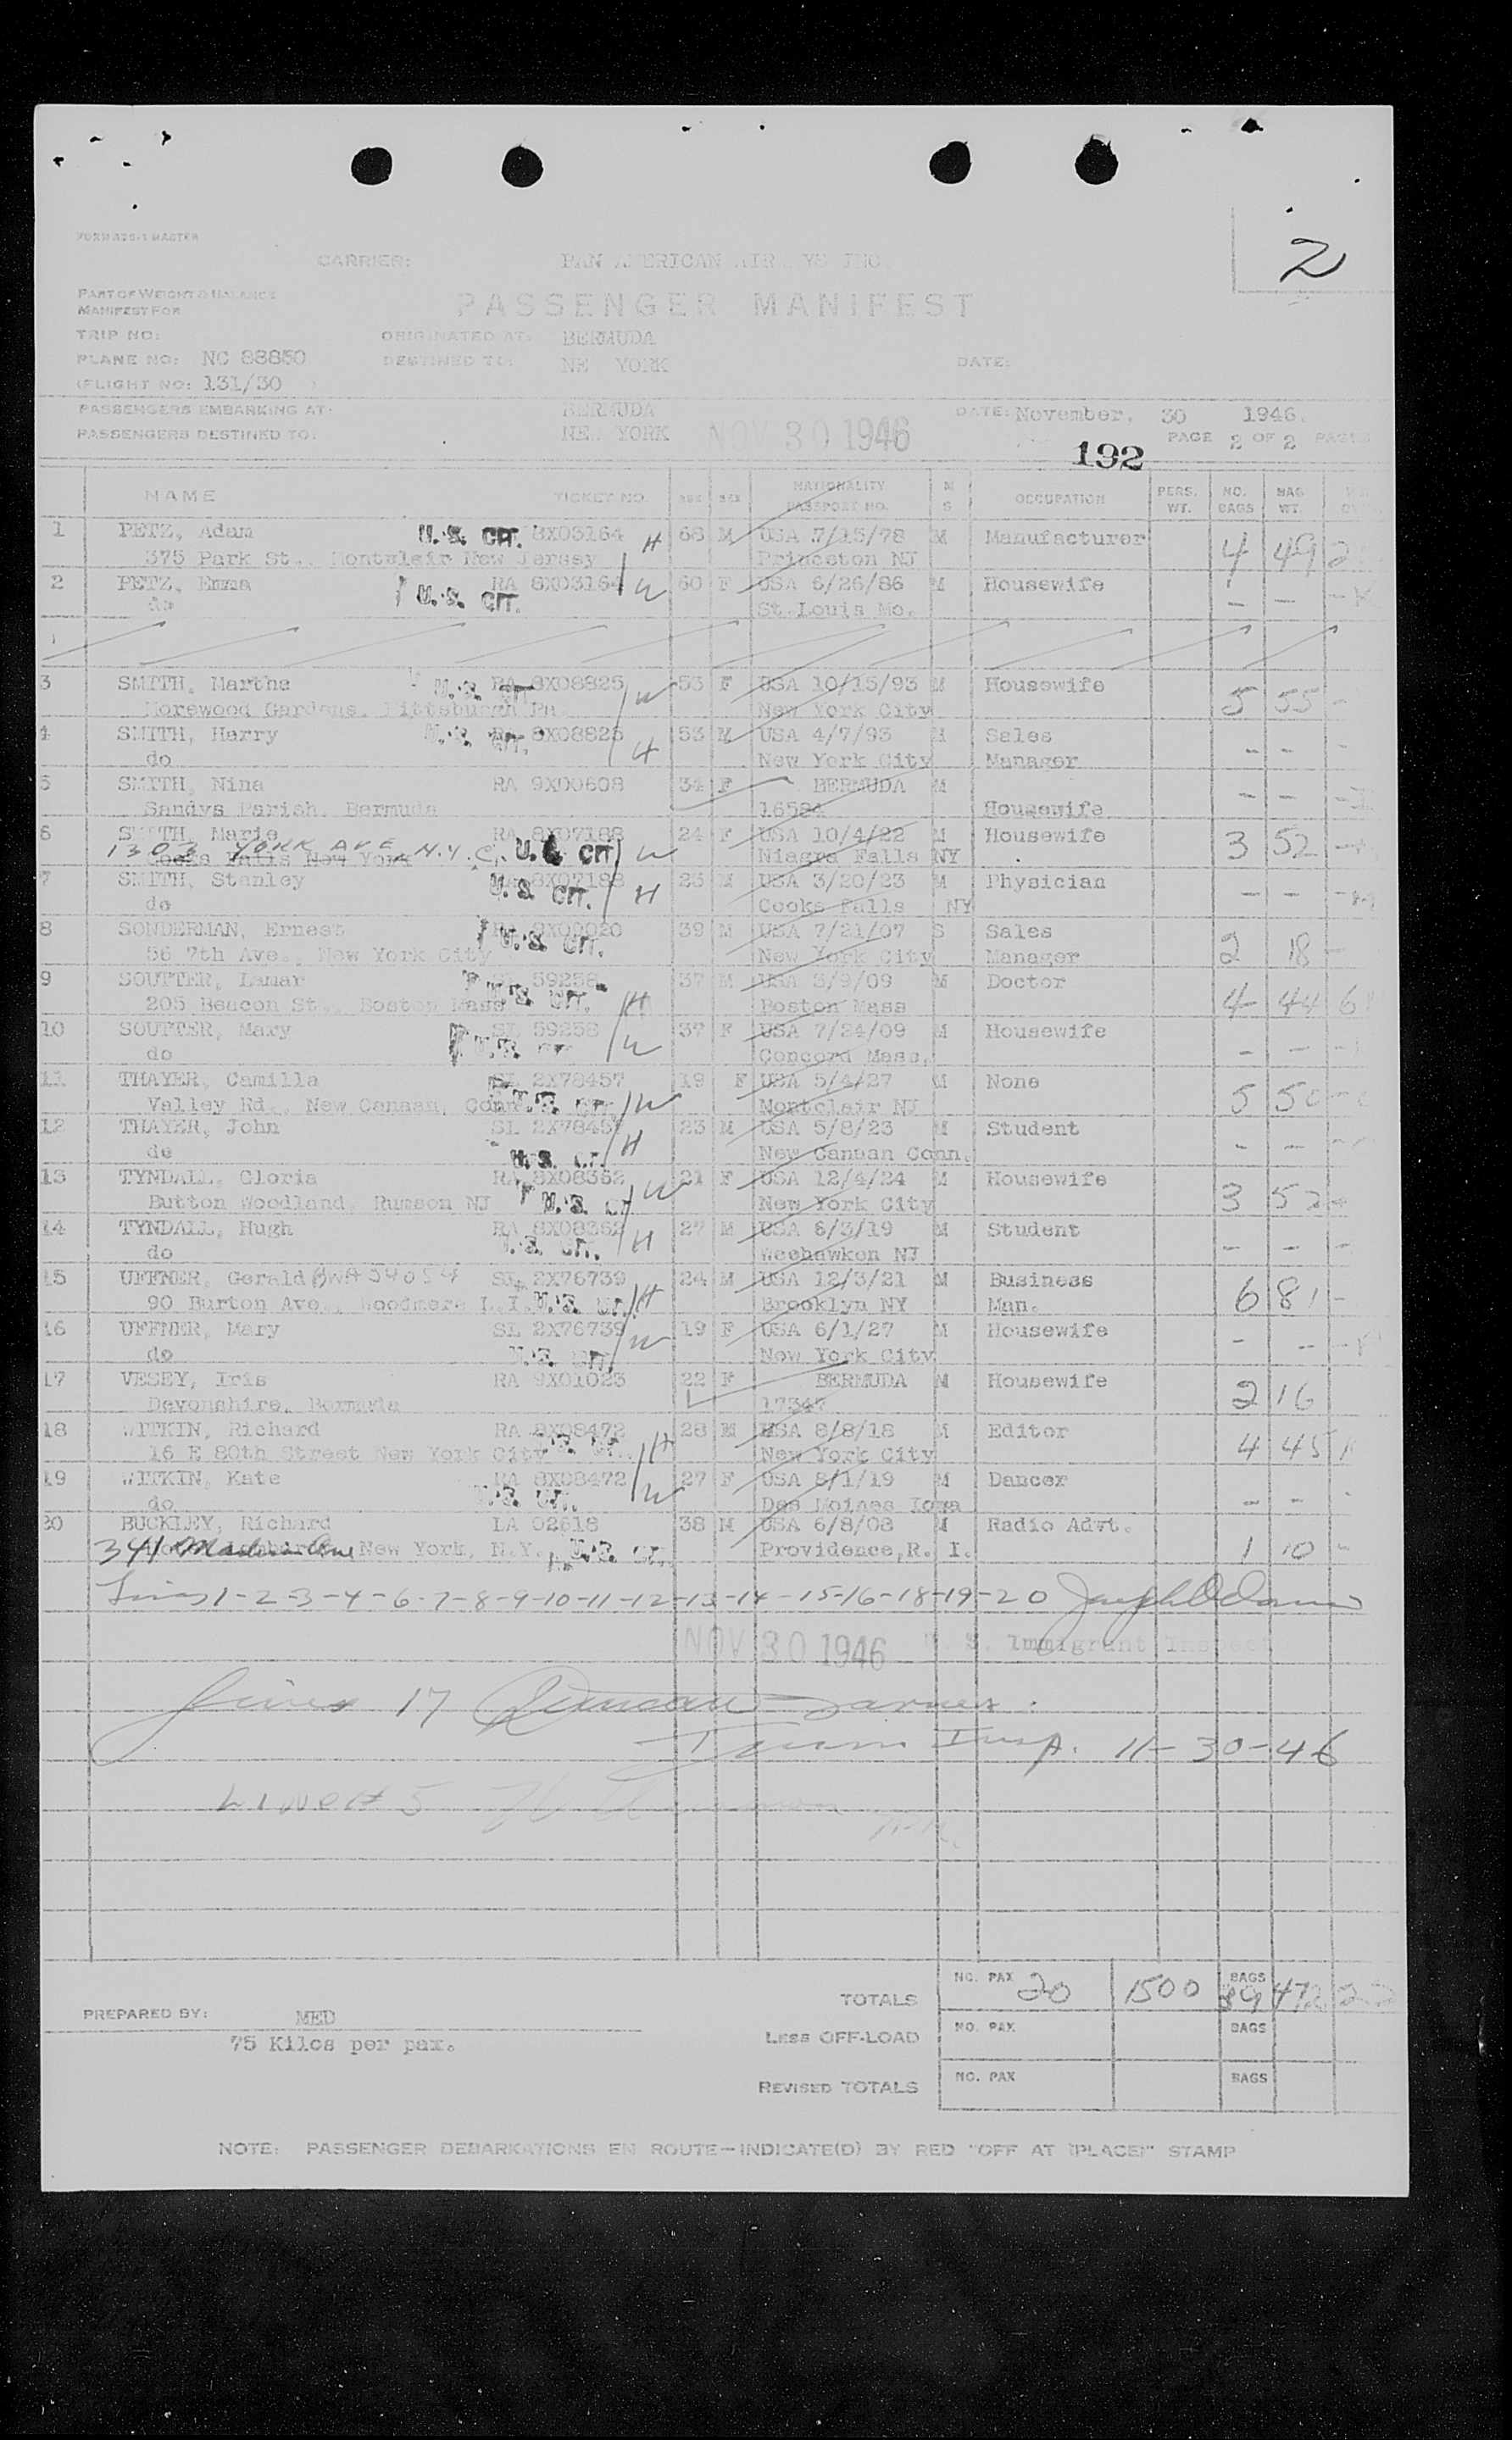 FORM 325-1 MASTER
2
CARRIER: PAN AMERICAN AIR YS INC
PART OF WEIGHT & BALANCE
MANIFEST FOR
PASSENGER MANIFEST
TRIP NO: ORIGINATED AT: BERMUDA
PLANE NO: NC 88850 DESTINED TO: NE YORK DATE:
(FLIGHT NO: 131/30 )
PASSENGERS EMBARKING AT: BERMUDA DATE: November, 30 1946.
PASSENGERS DESTINED TO: NE YORK NOV 30 1946 192 PAGE 2 OF 2 PAGES
NAME TICKET NO. AGE SEX NATIONALITY PASSPORT NO. M S OCCUPATION PERS. WT. NO. BAGS BAG WT.
1 PETZ, Adam U.S. CIT. 8X03164 H 68 M USA 7/15/78 M Manufacturer 4 49 2
375 Park St., Montclair New Jersey Princeton NJ
2 PETZ, Emma U.S. CIT. RA 8X03164 W 60 F USA 6/26/86 M Housewife - - -
do St.Louis Mo.
3 SMITH, Martha U.S. CIT. RA 8X08825 W 53 F USA 10/15/93 M Housewife 5 55 -
Morewood Gardens, Pittsburgh Pa New York City
4 SMITH, Harry U.S. CIT. 8X08825 H 53 M USA 4/7/93 M Sales - - -
do New York City Manager
5 SMITH, Nina RA 9X00608 34 F BERMUDA M
Sandys Parish, Bermuda 16584 Housewife - - -
6 SMITH, Marie RA 8X07188 24 F USA 10/4/22 M Housewife 3 52 -
1303 YORK AVE N.Y.C. Cooks Falls New York U.S. CIT W Niagra Falls NY
7 SMITH, Stanley 8X07188 23 M USA 3/20/23 M Physician - - -
do U.S. CIT. H Cooks Falls NY
8 SONDERMAN, Ernest 39 M USA 7/21/07 S Sales
56 7th Ave., New York City U.S. CIT. New York City Manager 2 18 -
9 SOUTTER, Lamar SL 59258 37 M USA 3/9/09 M Doctor
205 Beacon St., Boston Mass U.S. CIT. H Boston Mass 4 44 6
10 SOUTTER, Mary SL 59258 37 F USA 7/24/09 M Housewife
do U.S. CIT W Concord Mass. - - -
11 THAYER, Camilla SL 2X78457 19 F USA 5/4/27 M None
Valley Rd., New Canaan, Conn U.S. CIT. W Montclair NJ 5 50 -
12 THAYER, John SL 2X78457 23 M USA 5/8/23 M Student
do U.S. CIT H New Canaan Conn. - - -
13 TYNDALL, Gloria RA 8X08362 21 F USA 12/4/24 M Housewife
Button Woodland, Rumson NJ U.S. CIT W New York City 3 52 -
14 TYNDALL, Hugh RA 8X08362 27 M USA 6/3/19 M Student
do U.S. CIT. H Weehawken NJ - - -
15 UFFNER, Gerald SL 2X76739 24 M USA 12/3/21 M Business
90 Burton Ave., Woodmere L.I. U.S. CIT. H Brooklyn NY Man. 6 81 -
16 UFFNER, Mary SL 2X76739 W 19 F USA 6/1/27 M Housewife
do U.S. CIT. New York City - - -
17 VESEY, Iris RA 9X01023 22 F BERMUDA M Housewife
Devonshire, Bermuda 2 16
18 WITKIN, Richard RA 8X08472 28 M USA 8/8/18 M Editor
16 E 80th Street New York City H New York City 4 45
19 WITKIN, Kate RA 8X08472 27 F USA 8/1/19 M Dancer
do U.S. CIT. W Des Moines Iowa - - -
20 BUCKLEY, Richard LA 02618 38 M USA 6/8/08 M Radio Advt.
341 Madison Ave New York, N.Y. U.S. CIT. Providence, R. I. 1 10 -
Lines 1-2-3-4-6-7-8-9-10-11-12-13-14-15-16-18-19-20
NOV 30 1946 U. S. Immigrant Inspect
Lines 17
Insp. 11-30-46
Line # 5
TOTALS NO. PAX 20 1500 BAGS 39 472 22
PREPARED BY: MED
75 Kilos per pax.
LESS OFF-LOAD NO. PAX BAGS
REVISED TOTALS NO. PAX BAGS
NOTE: PASSENGER DEBARKATIONS EN ROUTE—INDICATE(D) BY RED "OFF AT (PLACE)" STAMP